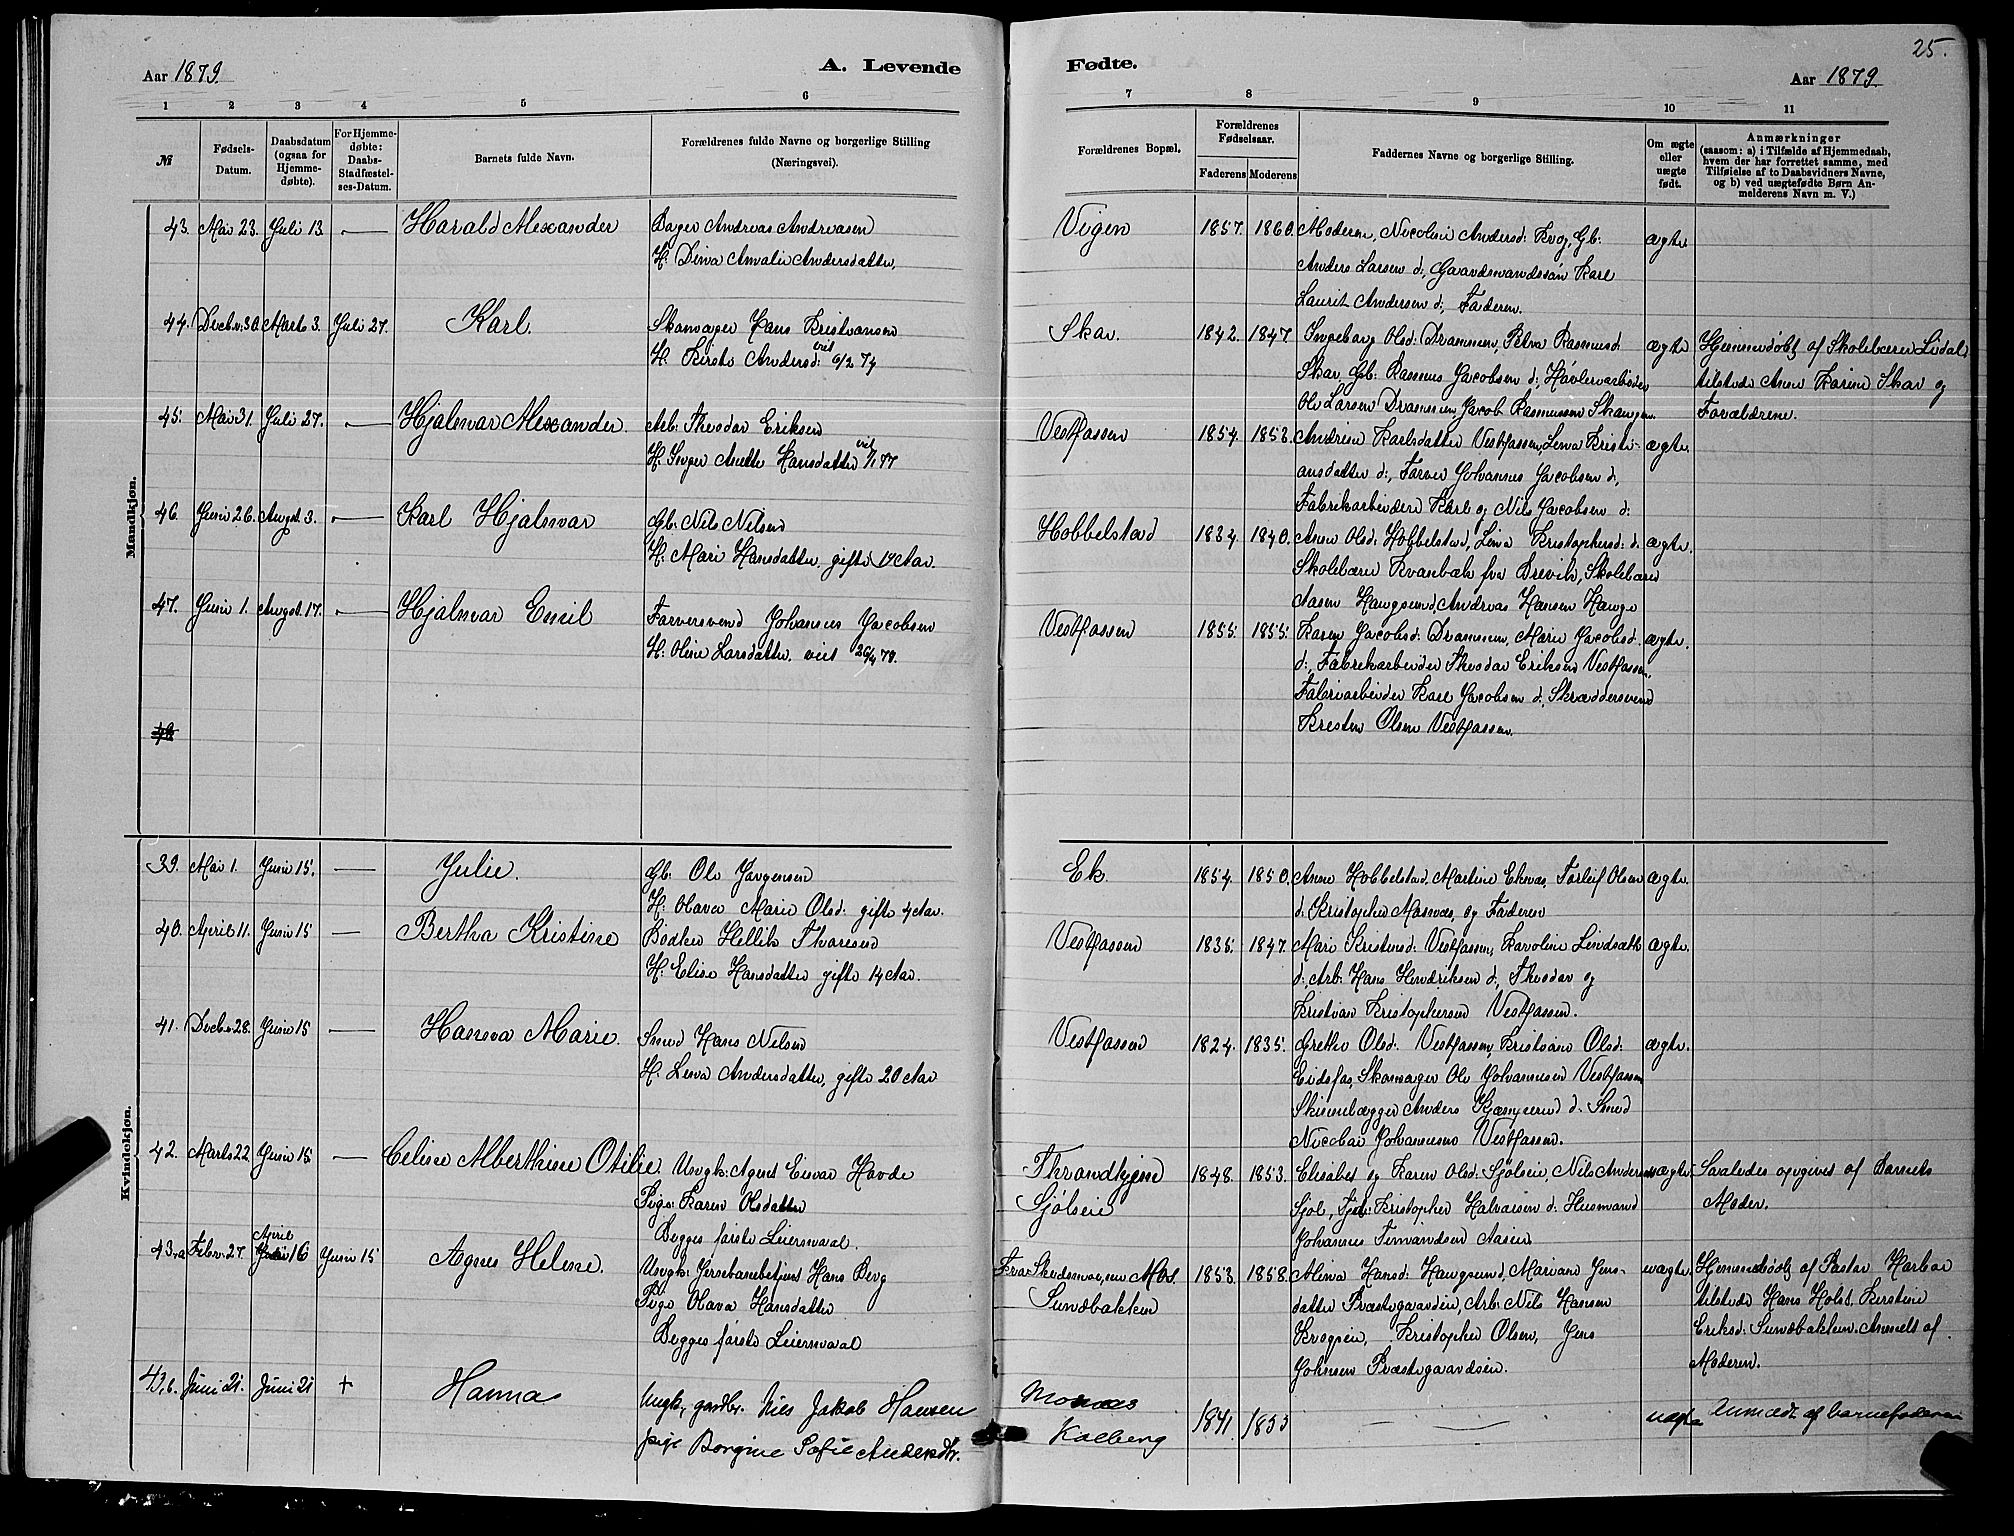 25.
Aar 1879. A. Levende Fødte. Aar 1879.
1 2 3 4 5 6 7 8 9 10 11
№
Fødsels-
Datum.
Daabsdatum
(ogsaa for
Hjemme-
døbte).
For Hjemme-
døbte:
Daabs-
Stadfæstel-
ses-Datum.
Barnets fulde Navn.
Forældrenes fulde Navne og borgerlige Stilling
(Næringsvei).
Forældrenes Bopæl.
Forældrenes
Fødselsaar.
Faderens Moderens
Faddernes Navne og borgerlige Stilling.
Om ægte
eller
uægte
født.
Anmærkninger
(saasom: a) i Tilfælde af Hjemmedaab,
hvem der har forrettet samme, med
Tilføielse af to Daabsvidners Navne,
og b) ved uægtefødte Børn An-
melderens Navn m. V.)
Mandkjøn.
43. Mai 23. Juli 13. — Harald Alexander Bager Andreas Andreasen Vigen 1857. 1860. Moderen, Nicoline Andersd: Krog, Gb: ægte
H: Dina Amalie Andersdatter, Anders Larsen d:, Gaardmandssøn Karl
Laurits Andersen d:, Faderen.
44. Decbr. 30. Marts 3. Juli 27. Karl. Skomager Hans Kristiansen Skar. 1842. 1847. Ingeborg Olsd: Drammen, Petra Rasmusd: ægte Hjemmedøbt af Skolelærer Lidal
H. Kirsti Andersd: viet 6/2 74 Skar, Gb: Rasmus Jacobsen d:, Høvleriarbeider tilstede Anne Karine Skar og
Ole Larsen Drammen, Jacob Rasmussen Skaugen. Forældrene.
45. Mai 31. Juli 27. — Hjalmar Alexander Arb. Theodor Eriksen Vestfossen 1854. 1853. Andrine Karlsdatter Vestfossen, Lina Kristi- ægte.
H. Inger Anette Hansdatter viet 1/1 77 ansdatter d:, Farver Johannes Jacobsen d:,
Fabrikarbeidere Karl og Nils Jacobsen d:
46. Juni 26. August 3. — Karl Hjalmar Gb. Nils Nilsen Hobbelstad 1834. 1840. Anne Olsd: Hobbelstad, Lina Kristophersd: d: ægte.
H. Mari Hansdatter. gifte Skolelærer Kvanbæk fra Brevik, Skolelærer
Aasen Haugsund, Andreas Hansen Hauge
47. Juni 1. August 17. — Hjalmar Emil Farversvend Johannes Jacobsen Vestfossen 1855. 1855. Karen Jacobsd: Drammen, Marie Jacobsd. ægte.
H: Oline Larsdatter. viet 26/4 78. d:, Fabrikarbeider Theodor Eriksen Vestfossen,
Fabrikarbeider Karl Jacobsen d:, Skræddersvend
Kristen Olsen Vestfossen.
Kvindekjøn.
39. Mai 1. Juni 15. — Julie. Gb. Ole Jørgensen Ek. 1854. 1850. Anne Hobbelstad, Martine Eknæs, Torleif Olsen ægte.
H: Olava Marie Olsd: gifte 4 Aar. d: Kristopher Masnæs, og Faderen
40. April 11. Juni 15 — Bertha Kristine Bødker Hellik Thoresen Vestfossen 1835. 1847. Mari Kristensd: Vestfossen, Karoline Lindsæth ægte.
H. Elise Hansdatter gifte 14 Aar. d:, Arb. Hans Hendriksen d:, Theodor og
Kristian Kristophersen Vestfossen.
41. Decbr. 28. Juni 15 — Hanna Marie. Smed Hans Nilsen Vestfossen 1824. 1835. Grethe Olsd. Vestfossen, Kristiane Olsd: ægte.
H. Lena Andersdatter, gifte 20 Aar Eidsfos, Skomager Ole Johannesen Vestfossen
Skinnelægger Anders d. Smed
Nicolai Johannesen Vestfossen.
42. Marts 22. Juni 15 — Celine Albertine Otilie. Ungk: Agent Einar Hovde Thrandhjem 1848. 1853. Elisabet og Karen Olsd: Sjølseie, Nils Andersen uægte. Saaledes opgivet af Barnets
Pige Karen Olsdatter Sjølseie Sjøl, Tjd: Kristopher Halvorsen d: Husmand Moder.
Begges første Leiermaal. Johannes Aasen
43.a Febr. 27. April 16 Juni 15 Agnes Helene. Ungk: Jernbanebetjent Hans Berg Fra Skedsmo, nu Mos. 1853. 1858. Alina Hansd: Haugsund, Mariane Jens- uægte. Hjemmedøbt af Pastor Harboe
Pige Olava Hansdatter Sundbakken datter Præstegaardseie, Arb: Nils Hansen tilstede Hans Holst, Kirstine
Begges første Leiermaal Krogseie, Kristopher Olsen, Jens Eriksd: Sundbakken. Anmeldt af
Johnsen Præstegaardseie. Moderen.
43,b. Juni 21. Juni 21 + Hanna Ungk, gaardbr. Nils Jakob Hansen Mosnæs 1841. 1853 — — uægte Anmeldt af barnefaderen
pige Borgine Sofie Andersdtr. Kolberg